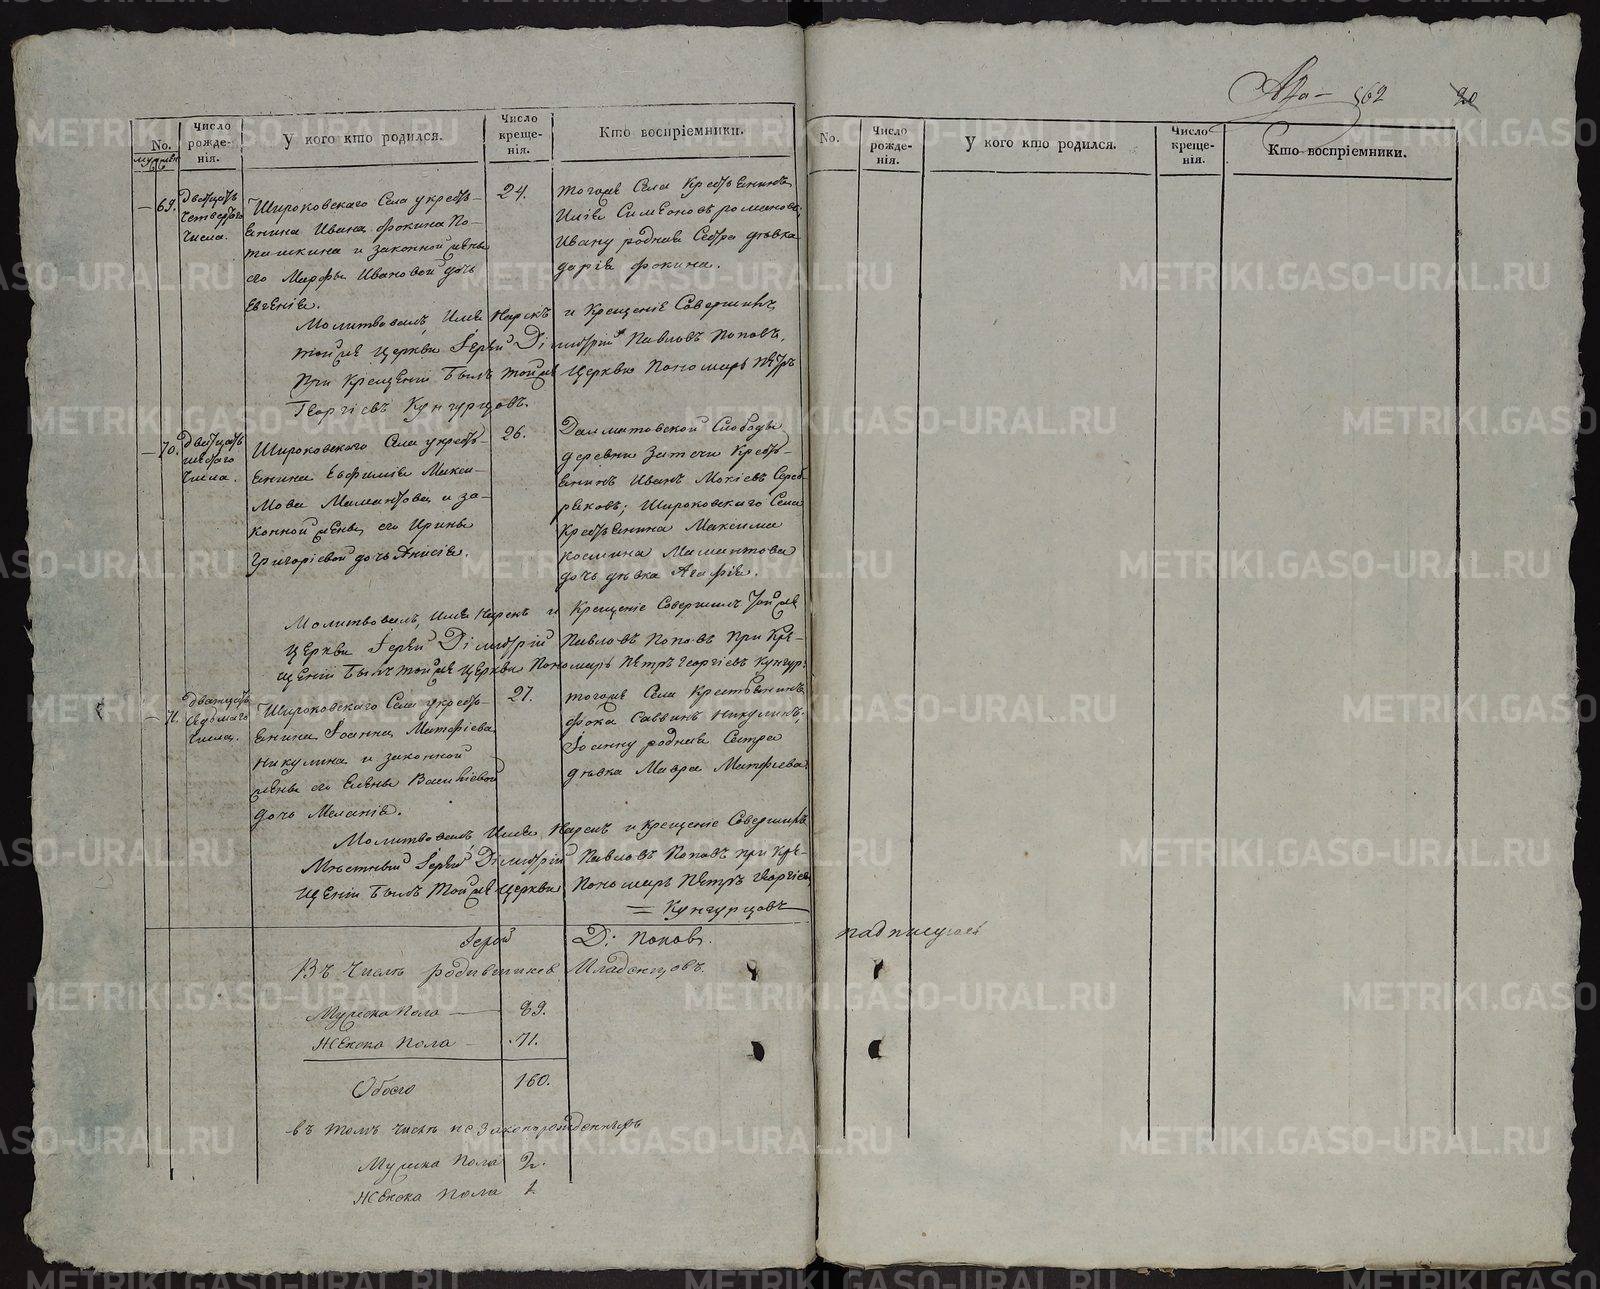 No.
Число рожденія.
У кого кто родился.
Число крещенія.
Кто воспріемники.
69.
двадцать
четвертаго
числа.
Широковскаго Села у кресть-
янина Ивана Фокина По-
ташкина и законной жены
его Марфы Ивановой дочь
Евгенія.
24.
тогоже Села Крестьянинъ
Илія Симеоновъ романовъ;
Ивану родная Сестра дѣвка
дарія фокина.
Молитвовалъ, Имя Нарекъ и Крещеніе Совершилъ
тойже Церкви Іерей Димитрій Павловъ Поповъ,
При Крещеніи былъ тойже Церкви Пономарь Петръ
Георгіевъ Кунгурцовъ.
70.
двадцать
шестаго
числа.
Широковскаго Села у кресть-
янина Евфимія Макси-
мова Мамантова и за-
конной жены его Ирины
Григоріевой дочь Анисія.
26.
Далматовской Слободы
деревни Затечи Кресть-
янинъ Иванъ Мокіевъ Сереб-
ряковъ; Широковскаго Села
Крестьянина Максима
космина Мамантова
дочь дѣвка Агафія.
Молитвовалъ, Имя Нарекъ и Крещеніе Совершилъ Тойже
Церкви Іерей Димитрій Павловъ Поповъ При Кре-
щеніи былъ тойже Церкви Пономарь Петръ Георгіевъ Кунгур:
71.
двадцать
седьмаго
числа.
Широковскаго Села у кресть-
янина Іоанна Матфіева
Никулина и законной
жены его Елены Василіевой
дочь Меланія.
27.
тогоже Села Крестьянинъ
фока Саввинъ Никулинъ;
Іоанну родная Сестра
дѣвка Мавра Матфіева.
Молитвовалъ, Имя Нарекъ и Крещеніе Совершилъ
Мѣстный Іерей Димитрій Павловъ Поповъ при Кре-
щеніи былъ Тойже Церкви Пономарь Петръ Георгіевъ
Кунгурцовъ
Іерей Ді: Поповъ.
Въ числѣ родившихся Младенцовъ.
Мужска пола — 89.
Женска пола — 71.
Обоего 160.
въ томъ числѣ незаконорожденныхъ
Мужска пола 2.
Женска пола 1.
562
20
No.
Число рожденія.
У кого кто родился.
Число крещенія.
Кто воспріемники.
METRIKI.GASO-URAL.RU